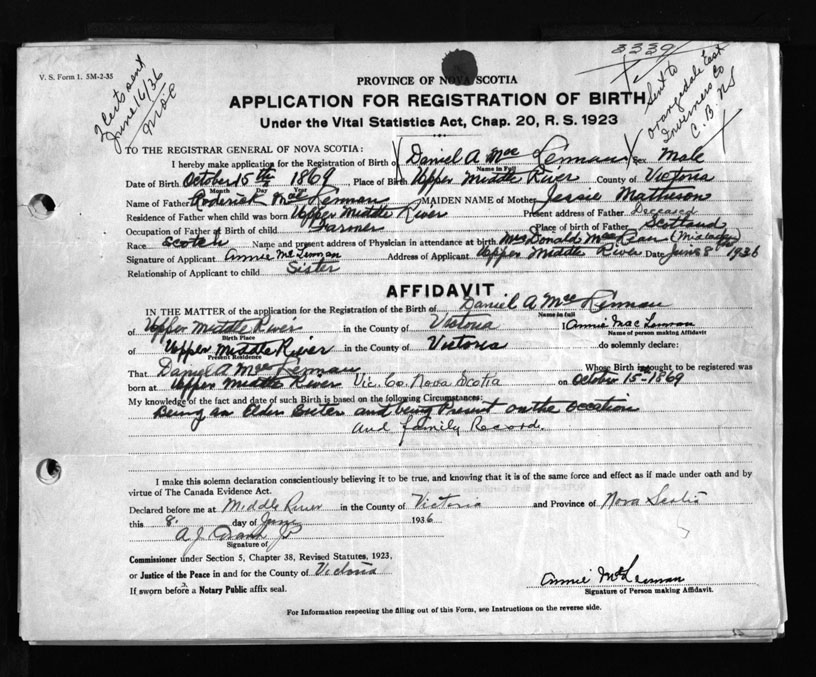 3339
V. S. Form 1. 5M-2-35
2 Certs sent
June 16/36
Sent to
Orangedale East
Inverness Co
C. B. N.S
PROVINCE OF NOVA SCOTIA
APPLICATION FOR REGISTRATION OF BIRTH
Under the Vital Statistics Act, Chap. 20, R. S. 1923
TO THE REGISTRAR GENERAL OF NOVA SCOTIA:
I hereby make application for the Registration of Birth of Daniel A Mac Lennan Sex Male
Name in Full
Date of Birth October 15th 1869 Place of Birth Upper Middle River County of Victoria
Month Day Year
Name of Father Roderick Mac Lennan MAIDEN NAME of Mother Jessie Matheson
Residence of Father when child was born Upper Middle River Present address of Father Deceased
Occupation of Father of Birth of child Farmer Place of Birth of Father Scotland
Race Scotch Name and present address of Physician in attendance at birth Mrs Donald Mac Lean (Midwife)
Signature of Applicant Annie McLennan Address of Applicant Upper Middle River Date June 8 1936
Relationship of Applicant to child Sister
AFFIDAVIT
IN THE MATTER of the application for the Registration of the Birth of Daniel A Mac Lennan
Name in full
of Upper Middle River in the County of Victoria I Annie Mac Lennan
Birth Place Name of person making Affidavit
of Upper Middle River in the County of Victoria do solemnly declare:
Present Residence
That Daniel A Mac Lennan Whose Birth is sought to be registered was
born at Upper Middle River Vic. Co. Nova Scotia on October 15-1869
My knowledge of the fact and date of such Birth is based on the following Circumstances:
Being an Elder Sister and being Present on the occation
and family Record.
I make this solemn declaration conscientiously believing it to be true, and knowing that it is of the same force and effect as if made under oath and by
virtue of The Canada Evidence Act.
Declared before me at Middle River in the County of Victoria and Province of Nova Scotia
this 8. day of June 1936
A. J.
Signature of
Commissioner under Section 5, Chapter 38, Revised Statutes, 1923,
or Justice of the Peace in and for the County of Victoria
If sworn before a Notary Public affix seal.
Annie McLennan
Signature of Person making Affidavit.
For Information respecting the filling out of this Form, see Instructions on the reverse side.